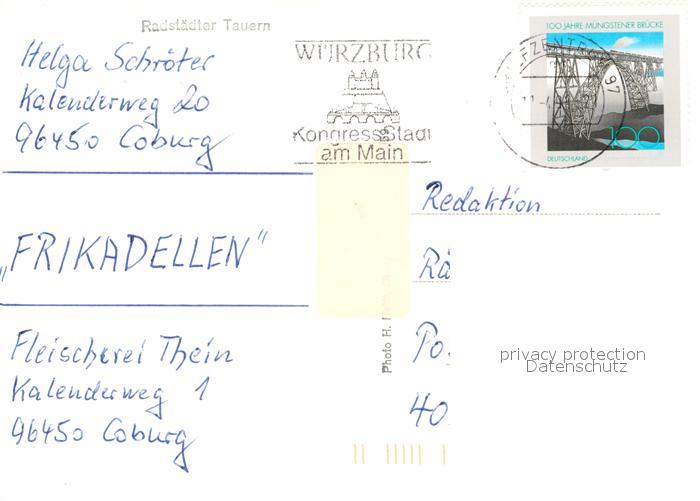 Radstädter Tauern
Helga Schröter
Kalenderweg 20
96450 Coburg
WÜRZBURG
KongressStadt
am Main
100 JAHRE MÜNGSTENER BRÜCKE
100
DEUTSCHLAND
97
„FRIKADELLEN“
Fleischerei Thein
Kalenderweg 1
96450 Coburg
Photo H.
Redaktion
Rä
Po
40
privacy protection
Datenschutz